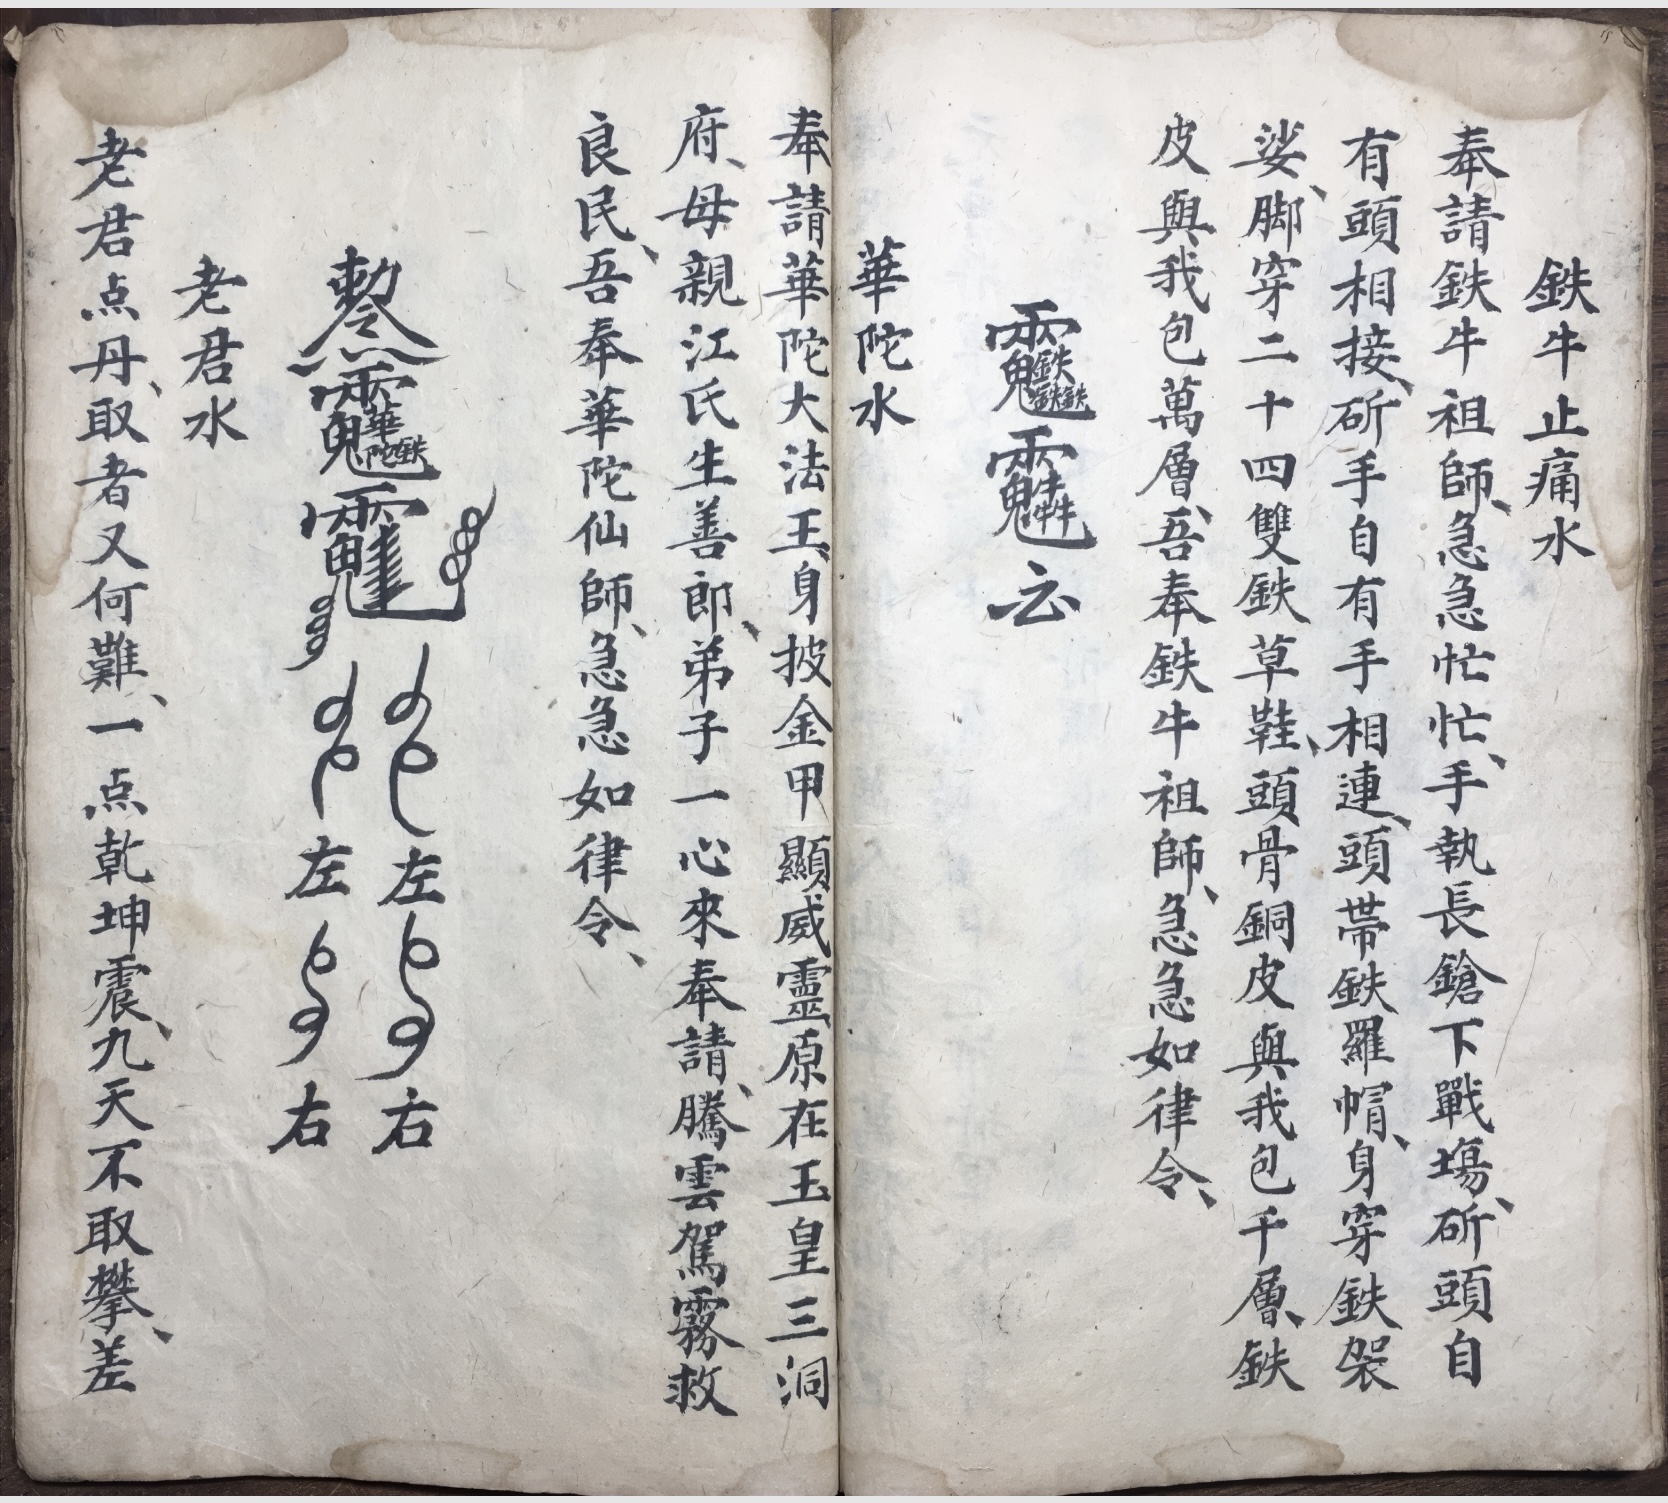 鉄牛止痛水
奉請鉄牛祖師、急急忙忙、手執長鎗下戰塲、斫頭自
有頭相接、斫手自有手相連、頭帯鉄羅帽、身穿鉄袈
娑、脚穿二十四雙鉄草鞋、頭骨銅皮與我包千層、鉄
皮與我包萬層、吾奉鉄牛祖師、急急如律令、
華陀水
奉請華陀大法王、身披金甲顯威靈原在玉皇三洞
府、母親江氏生善郎、弟子一心來奉請、騰雲駕霧救
良民、吾奉華陀仙師、急急如律令、
左右
左右
老君水
老君点丹、取者又何難、一点乾坤震、九天不取攀、差